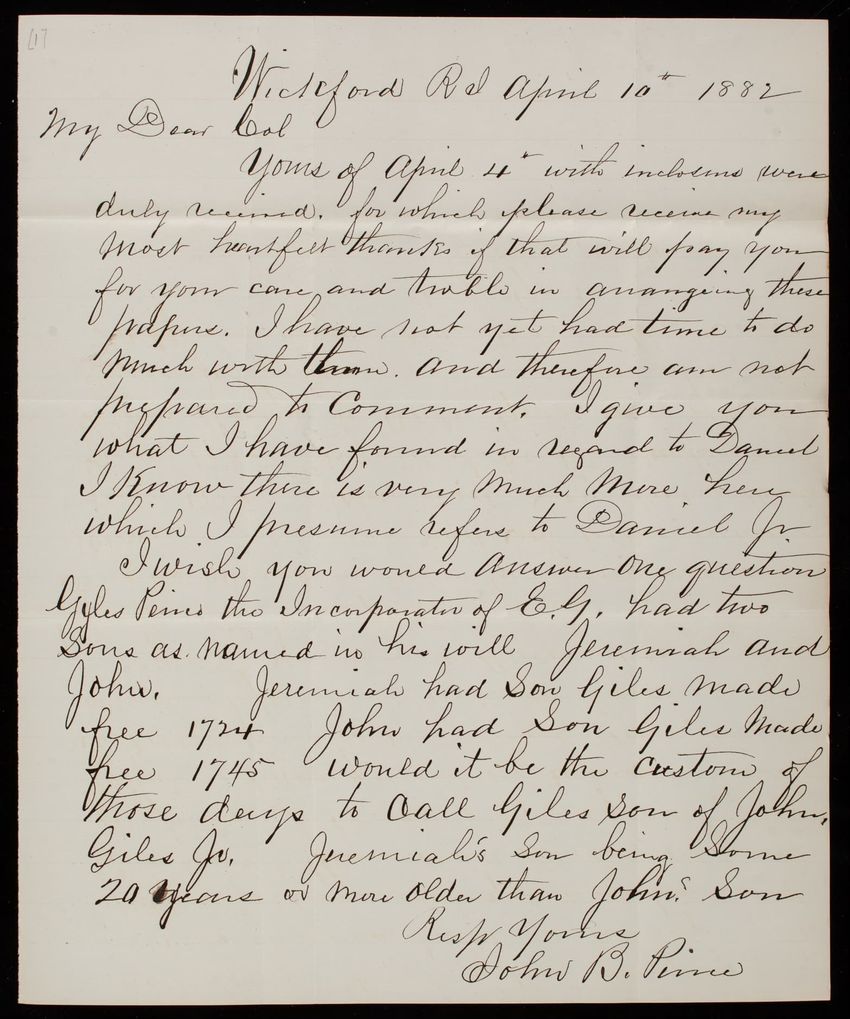 Wickford R I April 10th 1882
My Dear Col
Yours of April 4th with inclosures were
duly received. for which please receive my
most heartfelt thanks if that will pay you
for your care and troble in arrangeing these
papers. I have not yet had time to do
much with them. and therefore am not
prepared to comment. I give you
what I have found in regard to Daniel
I Know there is very much more here
which I presume refers to Daniel Jr
I wish you would answer one question
Gyles Peirce the Incorporator of E.G. had two
Sons as named in his will Jeremiah and
John. Jeremiah had Son Giles made
free 1724 John had Son Giles Made
free 1745 would it be the custom of
those days to Call Giles son of John,
Giles Jr. Jeremiah's Son being Some
20 years or more older than John's Son
Resp Yours
John B. Peirce